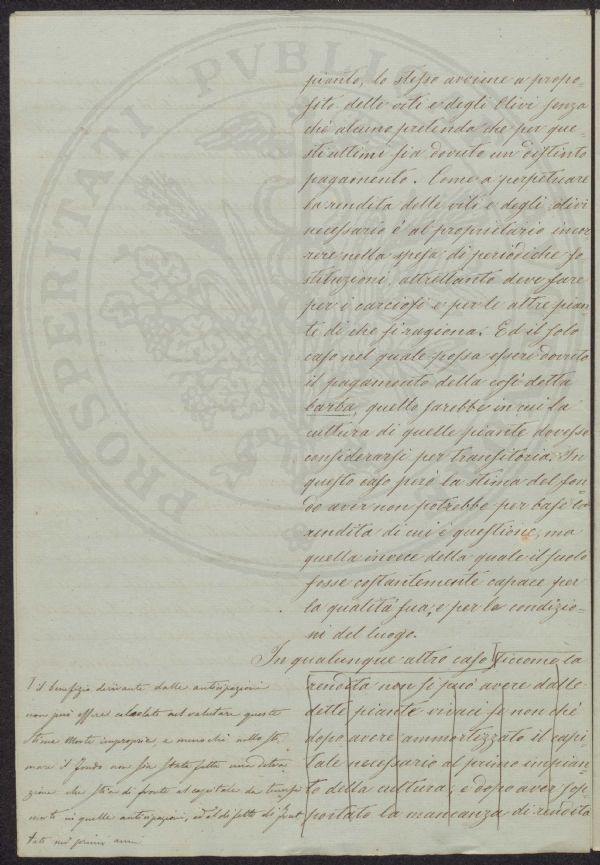 PROSPERITATI PVBLICAE
pianto, lo stesso avviene a propo-
sito delle viti e degli Olivi senza
chè alcuno pretenda che per que-
sti ultimi sia dovuto un distinto
pagamento. Come a perpetuare
la rendita delle viti e degli olivi
necessario è al proprietario incor
rere nella spesa di periodiche so
stituzioni, altrettanto deve fare
per i carciofi e per le altre pian
te di che si ragiona. Ed il solo
caso nel quale possa essere dovuto
il pagamento della così detta
barba, quello sarebbe in cui la
cultura di quelle piante dovesse
considerarsi per transitoria. In
questo caso però la stima del fon
do aver non potrebbe per base la
rendita di cui è questione, ma
quella invece della quale il suolo
fosse costantemente capace per
la qualità sua, e per le condizio-
ni del luogo.
In qualunque altro caso siccome la
rendita non si può avere dalle
dette piante vivaci se non chè
dopo avere ammortizzato il capi
tale necessario al primo impian
to della cultura, e dopo aver sop
portato la mancanza di rendita
il benefizio derivante dalle anticipazioni
non può essere calcolato nel valutare queste
Stime Morte improprie, e menochè nello sti
mare il fondo non sia stata fatta una detra
zione che stia di fronte al capitale da
in quelle anticipazioni, ed al difetto di frut
tato nei primi anni